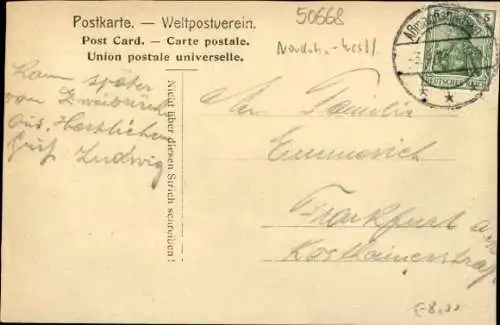 Postkarte. — Weltpostverein.
Post Card. — Carte postale.
Union postale universelle.
50668
Nordrh.-Westf.
5
DEUTSCHES REICH
Kam später
von Zweibrück
aus. Herzlichen
Gruß Ludwig
Nicht über diesen Strich schreiben!
An Familie
Emmerich
Frankfurt a.
E 8,00